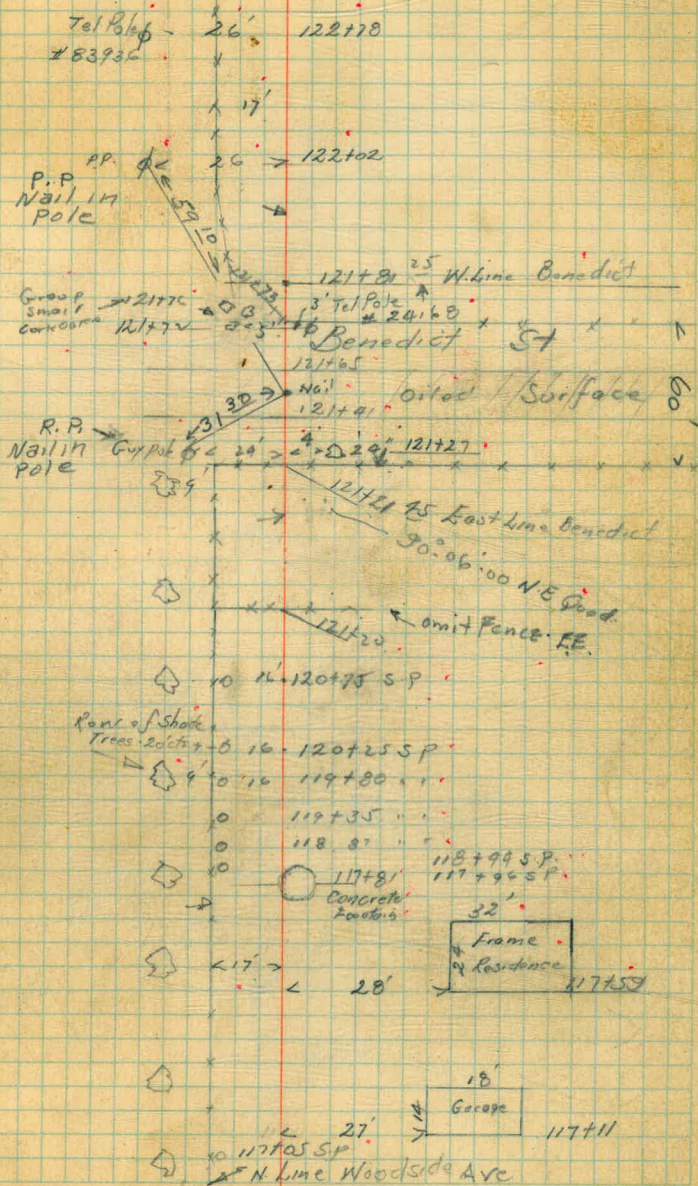 Tel Pole 26' 122+78
# 83936
17'
P.P. 26 122+02
P.P.
Nail in
Pole
59 10
121+81 25 W. Line Benedict
Group
Small
121+76
121+72
3' Tel Pole
# 24168
Benedict St
121+65
Nail
Oiled Surface
60'
31 30
121+41
R.P.
Nail in
Pole
Guy pole 29' 4' 29" 121+27
9'
121+21 45 East Line Benedict
90°:06':00 N.E Quad.
121+20
omit Fence. F.E.
16' 120+75 S P
Row of Shade
Trees 20' ctr
16 120+25 S P
9' 16 119+80 " "
119+35 " "
118 87 " "
118+44 S.P.
117+96 S P.
117+81
Concrete
Fountain
32'
Frame
Residence
24
17'
28'
117+59
18'
Garage
14
27'
117+11
117+05 S.P
N. Line Woodside Ave